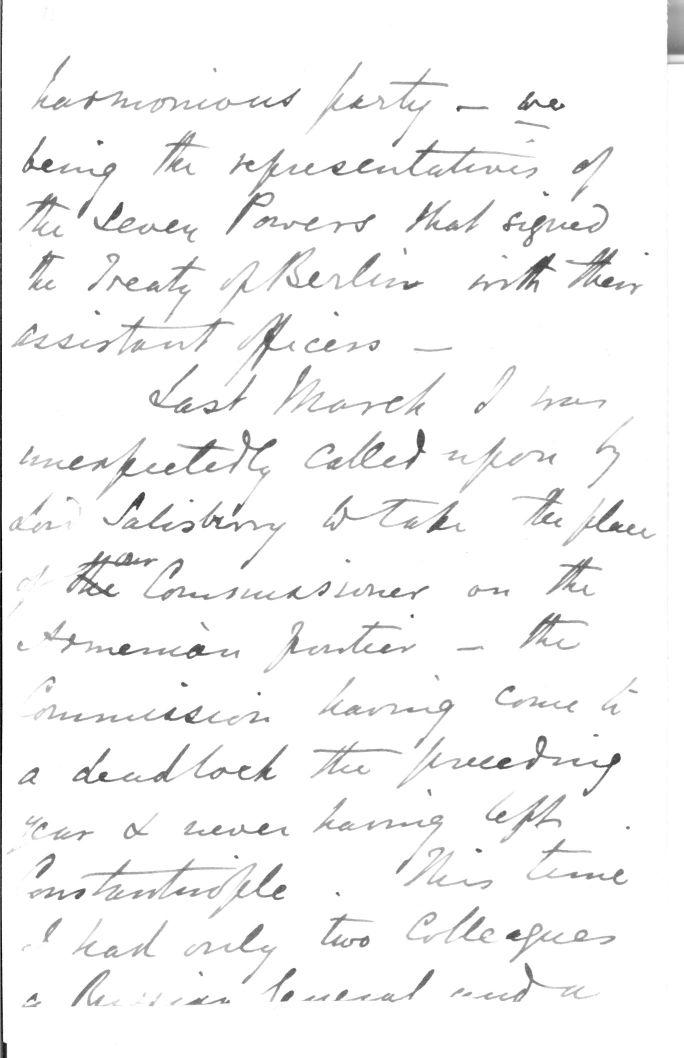 harmonious party – we
being the representatives of
the Seven Powers that signed
the Treaty of Berlin with their
assistant officers –
Last March I was
unexpectedly called upon by
Lord Salisbury to take the place
of the our Commissioner on the
Armenian frontier – the
Commission having come to
a deadlock the preceding
year & never having left
Constantinople. This time
I had only two Colleagues
a Russian General and a